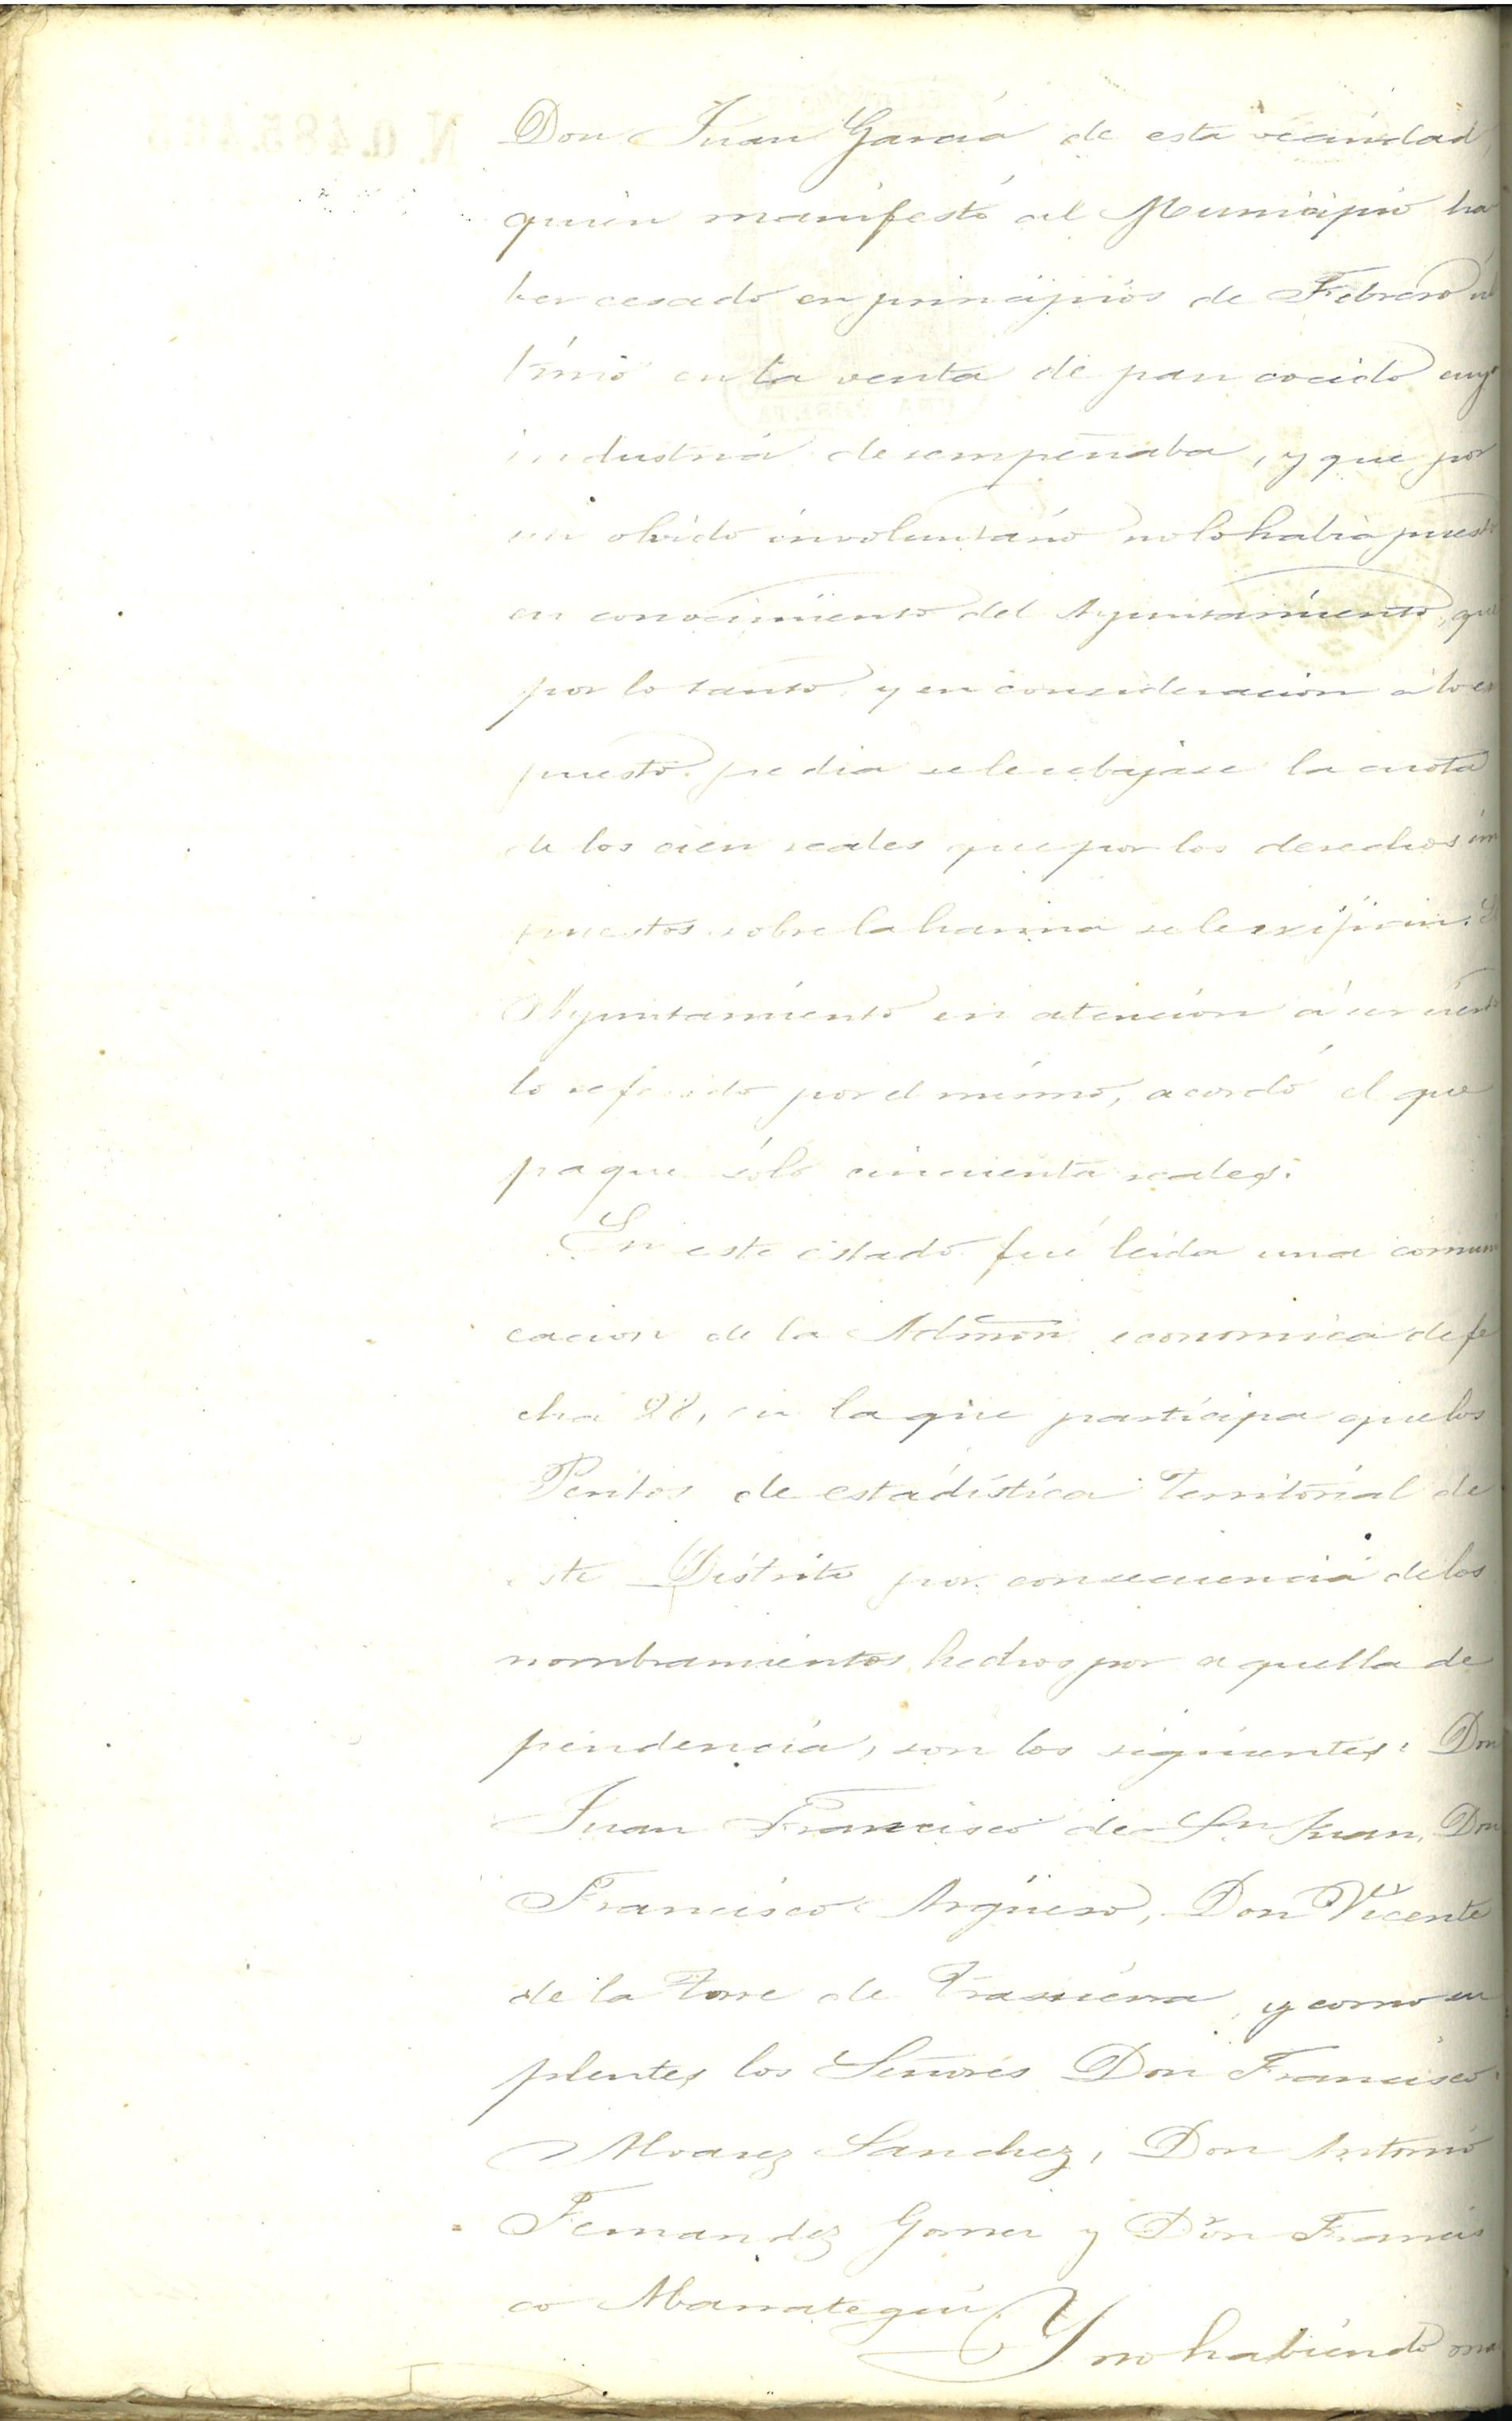 Don Juan García de esta vecindad,
quien manifestó al Municipio ha
ber cesado en principios de Febrero úl
timo en la venta de pan cocido cuya
industria desempeñaba, y que por
un olvido involuntario no lo habia puesto
en conocimiento del Ayuntamiento, que
por lo tanto, y en consideracion a lo es
puesto pedia se le rebajase la cuota
de los cien reales que por los derechos im
puestos sobre la harina se le exijian. El
Ayuntamiento en atencion á ser cierto
lo referido por el mismo, acordó el que
pague sólo cincuenta reales.
En este estado fué leida una comuni
cacion de la Admon economica de fe
cha 28, en la que participa que los
Peritos de estadística Territorial de
este Distrito por consecuencia de los
nombramientos hechos por aquella de
pendencia, son los siguientes: Don
Juan Francisco de Sn Juan, Don
Francisco Argüeso, Don Vicente
de la Torre de Trasierra, y como su
plentes los Señores Don Francisco
Alvarez Sanchez, Don Antonio
Fernandez Gomez y Don Francis
co Mannategui. Y no habiendo mas